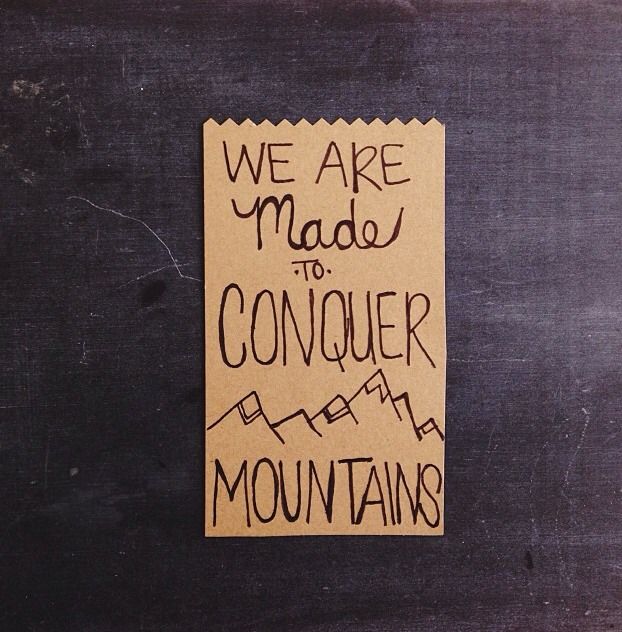 WE ARE
Made
·TO·
CONQUER
MOUNTAINS